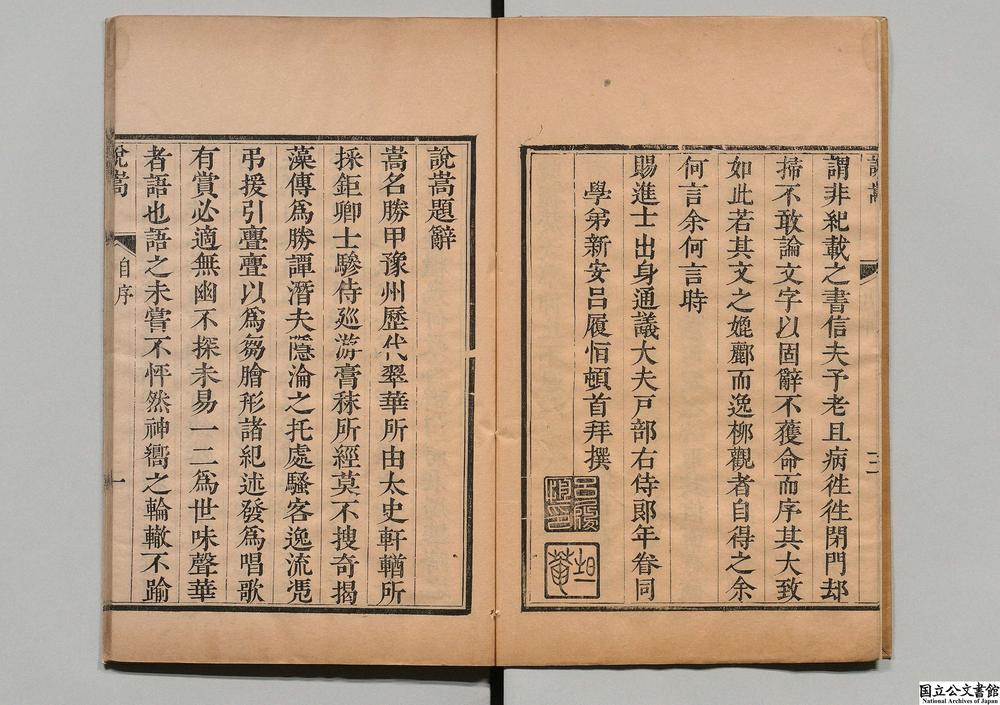 謂非紀載之書信夫予老且病徃徃閉門却
掃不敢論文字以固辭不獲命而序其大致
如此若其文之娩酈而逸柳觀者自得之余
何言余何言時
賜進士出身通議大夫戸部右侍郎年眷同
學弟新安呂履恒頓首拜撰
呂履恒印
坦菴
說嵩題辭
嵩名勝甲豫州歷代翠華所由太史軒輶所
採鉅卿士驂侍廵游膏秣所經莫不搜奇揭
藻傳爲勝譚潛夫隱淪之托處騷客逸流凭
弔援引亹亹以爲芻膾形諸紀述發爲唱歌
有賞必適無幽不探未易一二爲世味聲華
者語也語之未嘗不怦然神嚮之輪轍不踰
說嵩
自序
一
国立公文書館
National Archives of Japan